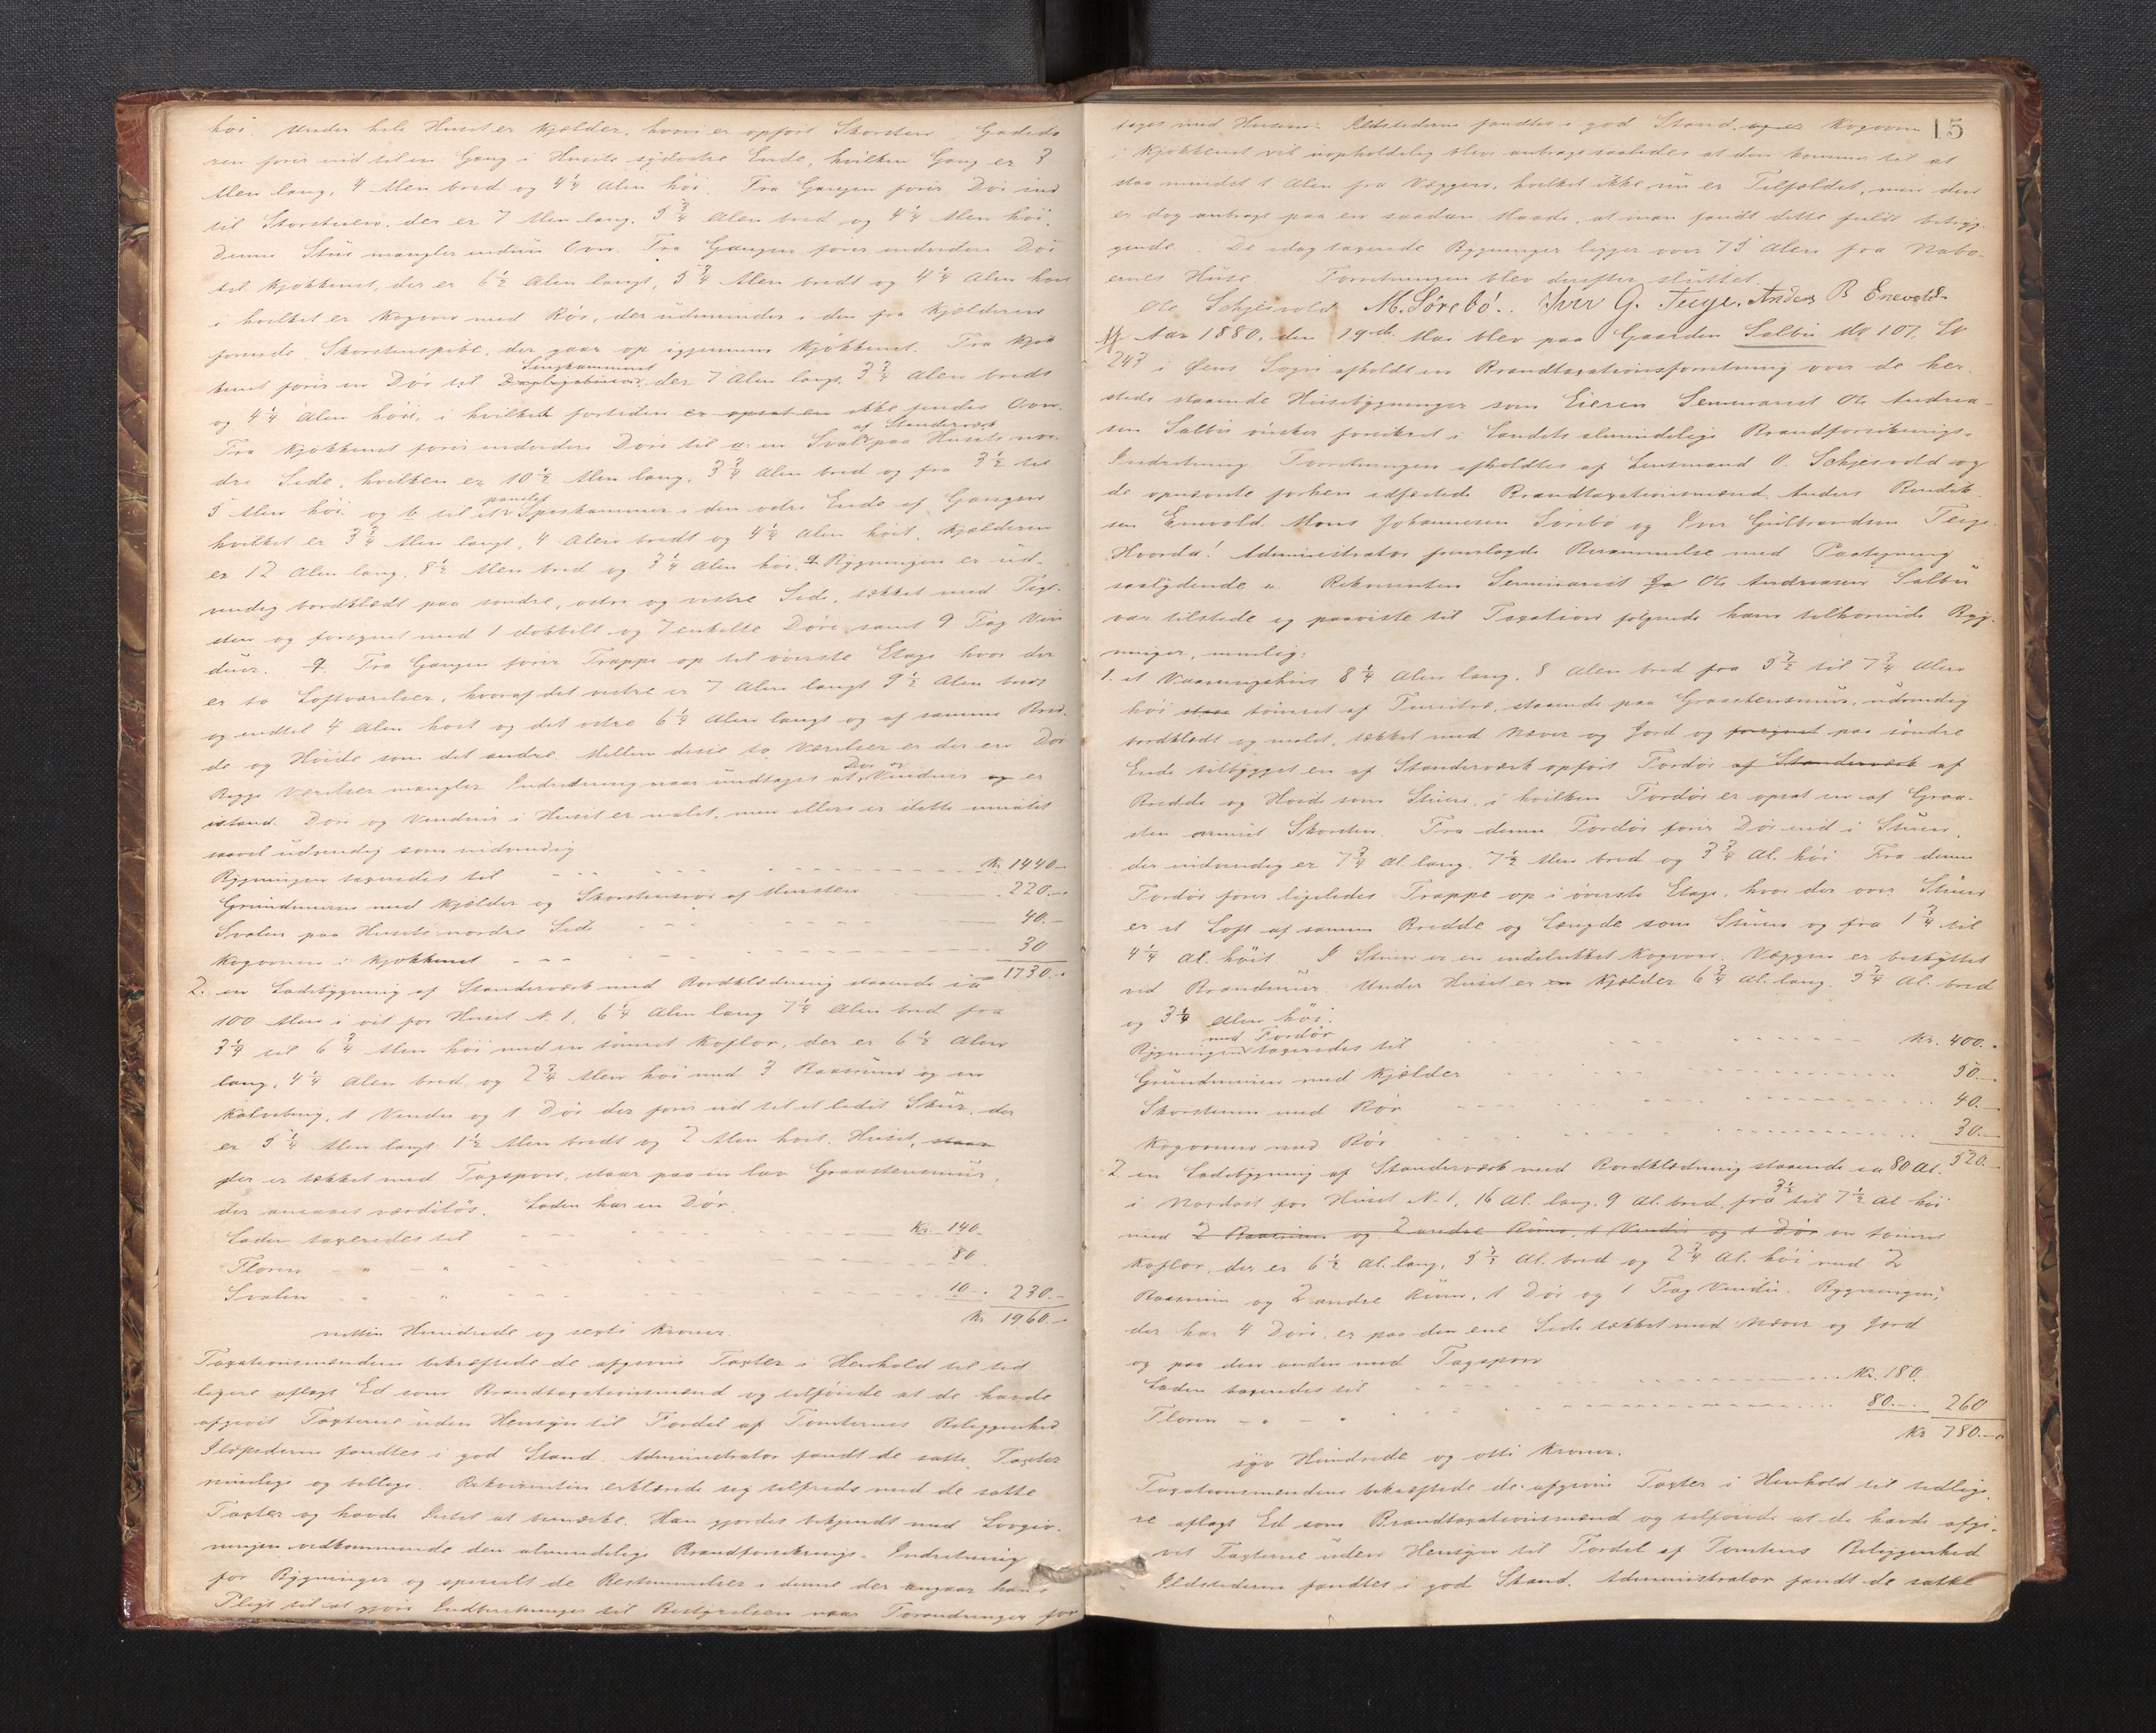 höi. Under hele Huset er Kjælder, hvori er opfört Skorsten. Gadedö
ren förer ind til en Gang i Husets sydöstre Ende, hvilken Gang er 3
Alen lang, 4 Alen bred og 4 1/4 Alen höi. Fra Gangen förer Dör ind
til Storstuen, der er 7 Alen lang, 5 3/4 Alen bred og 4 1/4 Alen höi.
Denne Stue mangler endnu Ovn. Fra Gangen förer endvidere Dör
til Kjökkenet, der er 6 1/2 Alen langt, 5 3/4 Alen bredt og 4 1/4 Alen höit
i hvilket er Kogovn med Rör, der udmunder i den fra Kjælderen
förende Skorstenspibe, der gaar op igjennem Kjökkenet. Fra Kjök
kenet förer en Dör til Sengkammeret der 7 Alen langt, 3 3/4 Alen bredt
og 4 1/4 Alen höit, i hvilket fortiden er opsat en ikke findes Ovn.
Fra Kjökkenet förer endvidere Döre til a. en Sval af Standerværk paa Husets nor
dre Side, hvilken er 10 1/2 Alen lang, 3 3/4 Alen bred og fra 3 1/2 til
5 Alen höi og b til et panelet Spiskammer i den östre Ende af Gangen
hvilket er 3 3/4 Alen langt, 4 Alen bredt og 4 1/4 Alen höit. Kjælderen
er 12 Alen lang, 8 1/2 Alen bred og 3 1/4 Alen höi. Bygningen er ud-
vendig bordklædt paa söndre, östre og vestre Side, tækket med Tegl-
sten og forsynet med 1 dobbelt og 7 enkelte Döre samt 9 Fag Vin
duer. Fra Gangen förer Trappe op til överste Etage hvor der
er to Loftværelser, hvoraf det vestre er 7 Alen langt 9 1/2 Alen bredt
og indtil 4 Alen höit og det östre 6 1/4 Alen langt og af samme Bred-
de og Höide som det andre. Mellem disse to Værelser er der en Dör
Begge Værelser mangler Indredning naar undtages at Dör og Vinduer og er
istand. Döre og Vinduer i Huset er malet, men ellers er dette umalet
saavel udvendig som indvendig
Bygningen taxeredes til Kr. 1440.-
Grundmuren med Kjælder og Skorstensrör af Mursten 220.-
Svalen paa Husets nordre Side 40.-
Kogovnen i Kjökkenet 30
1730.-
2. en Ladebygning af Standerværk med Bordklædning staaende ca
100 Alen i vest for Huset No. 1, 6 1/4 Alen lang 7 1/4 Alen bred fra
3 1/4 til 6 3/4 Alen höi med en tömret Koflor, der er 6 1/2 Alen
lang, 4 1/4 Alen bred, og 2 3/4 Alen höi med 3 Baasrum og en
Kalvebing, 1 Vindu og 1 Dör der förer ud til et lidet Skur, der
er 5 1/4 Alen langt 1 1/2 Alen bredt og 2 Alen höit. Huset, staar
der er tækket med Tagspon, staar paa en lav Graastensmur,
der ansaaes værdilös. Laden har en Dör.
Laden taxeredes til Kr. 140.
Floren - " - " 80
Svalen - " - " 10 - 230.-
Kr 1960.-
nitten Hundrede og sexti Kroner.
Taxationsmændene bekræftede de afgivne Taxter i Henhold til tid
ligere aflagt Ed som Brandtaxationsmænd og tilföiede at de havde
afgivet Taxterne uden Hensyn til Fordel af Tomternes Beliggenhed
Ildstederne fandtes i god Stand. Administrator fandt de satte Taxter
rimelige og billige. Rekvirenten erklærede sig tilfreds med de satte
Taxter og havde Intet at bemærke. Han gjordes bekjendt med Lovgiv-
ningen vedkommende den almindelige Brandforsikrings-Indretning
for Bygninger og specielt de Bestemmelser i denne der angaar hans
Pligt til at gjöre Indberetninger til Bestyrelsen naar Forandringer fore
15
tages med Husene. Ildstederne fandtes i god Stand, Kogovnen
i Kjökkenet vil uopholdelig blive anbragt saaledes at den kommer til at
staa mindst 1 Alen fra Væggen, hvilket ikke nu er Tilfældet, men den
er dog anbragt paa en saadan Maade, at man fandt dette fuldt betryg
gende. De idag taxerede Bygninger ligger over 75 Alen fra Nabo-
ernes Huse. Forretningen blev derefter sluttet.
Ole Schjesvold M. Sörebö. Iver G. Teige. Anders B Enevold.
Aar 1880, den 19de Mai blev paa Gaarden Salbu No 107, Lb
243 i Öens Sogn afholdt en Brandtaxationsforretning over de her-
steds staaende Husebygninger som Eieren Seminarist Ole Andrea-
sen Salbu önsker forsikret i Landets almindelige Brandforsikrings-
Indretning. Forretningen afholdtes af Lensmand O. Schjesvold og
de opnævnte forhen edfæstede Brandtaxationsmænd Anders Bendik-
sen Enevold, Mons Johannesen Sörebö og Iver Gulbrandsen Teige.
Hvorda! Administrator fremlagde Berammelse med Paategning
saalydende " Rekvirenten Seminarist Ole Andreasen Salbu
var tilstede og paaviste til Taxation fölgende ham tilhörende Byg-
ninger, nemlig:
1. et Vaaningshus 8 1/4 Alen lang, 8 Alen bred fra 5 1/2 til 7 3/4 Alen
höi staa tömret af Furutræ, staaende paa Graastensmur, udvendig
bordklædt og malet, tækket med Næver og Jord og forsynet paa söndre
Ende tilbygget en af Standerværk opfört Fordör af Standerværk af
Bredde og Höide som Stuen, i hvilken Fordör er opsat en af Graa-
sten ormuret Skorsten. Fra denne Fordör förer Dör ind i Stuen,
der indvendig er 7 3/4 Al. lang, 7 1/2 Alen bred og 3 3/4 Al. höi. Fra denne
Fordör förer ligeledes Trappe op i överste Etage, hvor der over Stuen
er et Loft af samme Bredde og Længde som Stuen og fra 1 3/4 til
4 1/4 Al. höit. I Stuen er en indelukket Kogovn. Væggen er beskyttet
ved Brandmur. Under Huset er en Kjælder 6 3/4 Al. lang, 5 3/4 Al. bred
og 3 1/4 Alen höi.
Bygningen med Fordör taxeredes til Kr. 400.-
Grundmuren med Kjælder 50.-
Skorstenen med Rör 40.-
Kogovnen med Rör 30.-
520.-
2 en Ladebygning af Standerværk med Bordklædning staaende ca 80 Al.
i Nordost for Huset No 1, 16 Al. lang, 9 Al. bred, fra 3 1/2 til 7 1/2 Al höi
med 2 Baasrum og 2 andre Rum, 1 Vindu og 1 Dör en tömret
Koflor, der er 6 1/2 Al. lang, 5 1/2 Al. bred og 2 3/4 Al. höi med 2
Baasrum og 2 andre Rum, 1 Dör og 1 Fag Vindu. Bygningen,
der har 4 Döre, er paa den ene Side tækket med Næver og Jord
og paa den anden med Tagspon
Laden taxeredes til Kr. 180.
Floren - " - " 80.- 260
Kr 780.-
syv Hundrede og otti Kroner.
Taxationsmændene bekræftede de afgivne Taxter i Henhold til tidlige-
re aflagt Ed som Brandtaxationsmænd og tilföiede at de havde afgi-
vet Taxterne uden Hensyn til Fordel af Tomtens Beliggenhed
Ildstederne fandtes i god Stand. Administrator fandt de satte